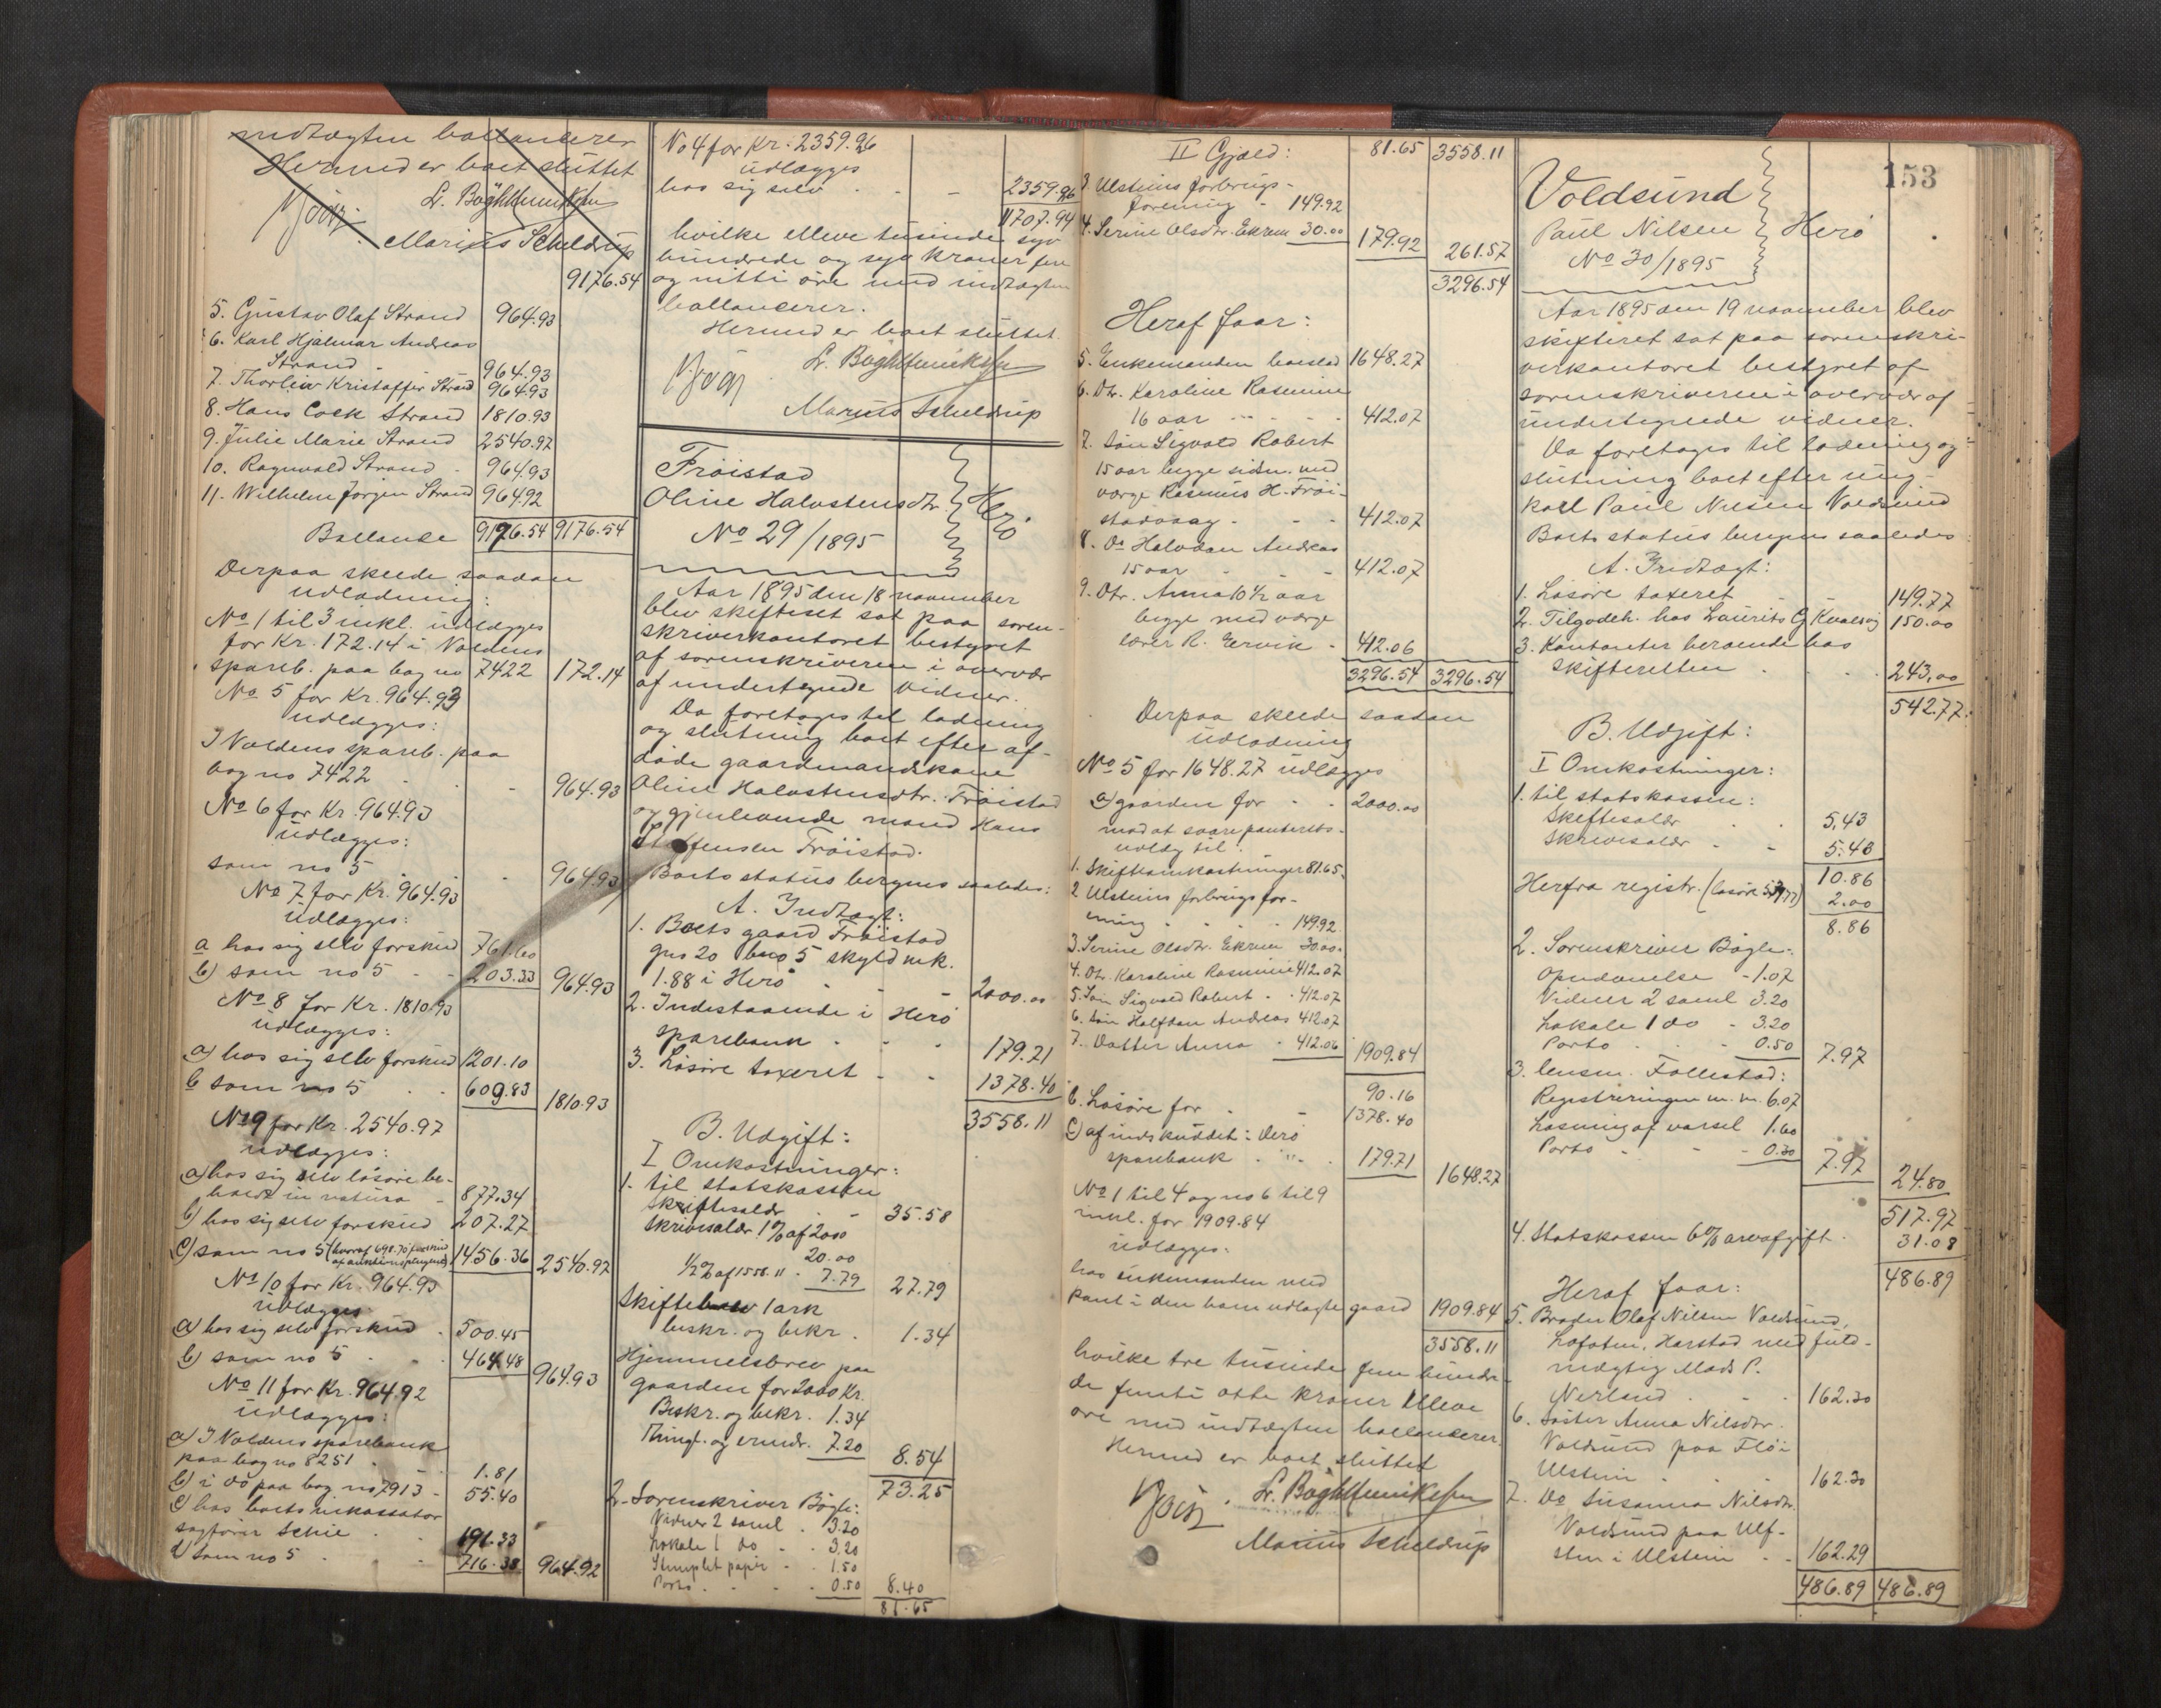 indtægten ballancerer
Hermed er boet sluttet
Marius Scheldrup
9176.54
5. Gustav Olaf Strand 964.93
6. Karl Hjalmar Andreas
Strand 964.93
7. Thorleiv Kristoffer Strand 964.93
8. Hans Cock Strand 1810.93
9. Julie Marie Strand 2540.97
10. Ragnvald Strand 964.93
11. Wilhelm Jörgen Strand 964.92
Ballance 9176.54 9176.54
Derpaa skede saadan
udlodning:
No 1 til 3 inkl. udlægges
for Kr. 172.14 i Voldens
spareb. paa bog no 7422 172.14
No 5 for Kr. 964.93
udlægges:
I Voldens spareb. paa
bog no 7422 964.93
No 6 for Kr. 964.93
udlægges:
som no 5 964.93
No 7 for Kr. 964.93
udlægges:
a hos sig selv forskud 761.60
b) som no 5 203.33 964.93
No 8 for Kr. 1810.93
udlægges:
a) hos sig selv forskud 1201.10
b som no 5 609.83 1810.93
No 9 for Kr. 2540.97
udlægges:
a) hos sig selv lösöre be-
holdt in natura 877.34
b) hos sig selv forskud 207.27
c) som no 5 (hvoraf 698.70 forskud
af auktionspengene) 1456.36 2540.97
No 10 for Kr. 964.93
udlægges
a) hos sig selv forskud 500.45
b) som no 5 464.48 964.93
No 11 for Kr. 964.92
udlægges:
a) I Voldens sparebank
paa bog no 8251 1.81
b) i do paa bog no 7913 55.40
c) hos boets inkassator
sagförer Schie 191.33
d) som no 5 716.38 964.92
No 4 for Kr. 2359.26
udlægges
hos sig selv 2359.26
11707.94
hvilke elleve tusinde syv
hundrede og syv kroner fire
og nitti öre med indtægten
ballancerer.
Hermed er boet sluttet.
Marius Scheldrup
Fröistad
Oline Halvstensdtr. Herö
No 29/1895
Aar 1895 den 18 november
blev skifteret sat paa soren-
skriverkontoret bestyret
af sorenskriveren i overvær
af undertegnede vidner.
Da foretoges til lodning
og slutning boet efter af-
döde gaardmandskone
Oline Halvstensdtr. Fröistad
og gjenlevende mand Hans
Steffensen Fröistad.
Boets status beregnes saaledes:
A. Indtægt:
1. Boets gaard Fröistad
gno 20 bno 5 skyld mk.
1.88 i Herö 2000.00
2. Indestaaende i Herö
sparebank 179.71
3. Lösöre taxeret 1378.40
3558.11
B. Udgift:
I Omkostninger:
1. til statskassen
skiftesalær 35.58
skrivesalær 1% af 2000
20.00
1/2% af 1558.11 7.79 27.79
Skiftebrev 1 ark
beskr. og bekr. 1.34
Hjemmelsbrev paa
gaarden for 2000 Kr.
Beskr. og bekr. 1.34
Thingl. og 7.20 8.54
73.25
2. Sorenskriver Bögh:
Vidner 2 saml 3.20
Lokale 1 do 3.20
Stemplet papir 1.50
Porto 0.50 8.40
81.65
II Gjæld: 81.65 3558.11
3. Ulsteins forbrugs-
forening 149.92
4. Serine Olsdtr. Ekrem 30.00 179.92 261.57
3296.54
Heraf faar:
5. Enkemanden boeslod 1648.27
6. Dtr. Karoline Rasmine
16 aar 412.07
7. sön Sigvald Robert
15 aar begge siden. med
værge Rasmus H. Fröi-
stadvaag 412.07
8. Do Halvdan Andreas
15 aar 412.07
9. Dtr. Anna 10 1/2 aar
begge med værge
lærer R. Ervik 412.06
3296.54 3296.54
Derpaa skede saadan
udlodning
No 5 for 1648.27 udlægges
a) gaarden for 2000.00
mod at svare panterets-
udlæg til:
1. Skifteomkostninger 81.65
2 Ulsteins forbrugsfor-
ening 149.92
3. Serine Olsdtr. Ekrem 30.00
4. Dtr. Karoline Rasmine 412.07
5. Sön Sigvald Robert 412.07
6. Sön Halfdan Andreas 412.07
7. Datter Anna 412.06 1909.84
90.16
b. Lösöre for 1378.40
c) af indskuddet i Herö
sparebank 179.71 1648.27
No 1 til 4 og no 6 til 9
inkl. for 1909.84
udlægges:
hos enkemanden med
pant i den ham udlagte gaard 1909.84
3558.11
hvilke tre tusinde fem hundre-
de femti otte kroner elleve
öre med indtægten ballancerer.
Hermed er boet sluttet
Marius Scheldrup
153
Voldsund
Paul Nilsen Herö
No 30/1895
Aar 1895 den 19 november blev
skifteret sat paa sorenskri-
verkontoret bestyret af
sorenskriveren i overvær af
undertegnede vidner.
Da foretoges til lodning og
slutning boet efter ung-
karl Paul Nilsen Voldsund
Boets status beregnes saaledes
A. Indtægt:
1. Lösöre taxeret 149.77
2. Tilgodeh. hos Laurits G Kvalsvig 150.00
3. Kontanter beroende hos
skifteretten 243.00
542.77
B. Udgift:
I Omkostninger:
1. til statskassen:
Skiftesalær 5,43
Skrivesalær 5.43
10.86
Herfra registr. 2.00
8.86
2. Sorenskriver Bögh:
Opnævnelse 1.07
Vidner 2 saml 3.20
Lokale 1 do 3.20
Porto 0.50 7.97
3. lensm. Follestad:
Registreringen m. m. 6.07
Læsning af varsel 1.60
Porto 0.30 7.97 24.80
517.97
4. Statskassen 6% arveafgift 31.08
486.89
Heraf faar:
5. Broder Olaf Nilsen Voldsund,
Lofoten, Harstad med fuld-
mægtig Mads P.
Nerland 162.30
6. Söster Anna Nilsdtr.
Voldsund paa Flö i
Ulstein 162.30
7. Do Susanna Nilsdtr.
Voldsund paa Ulf-
sten i Ulstein 162.29
486.89 486.89